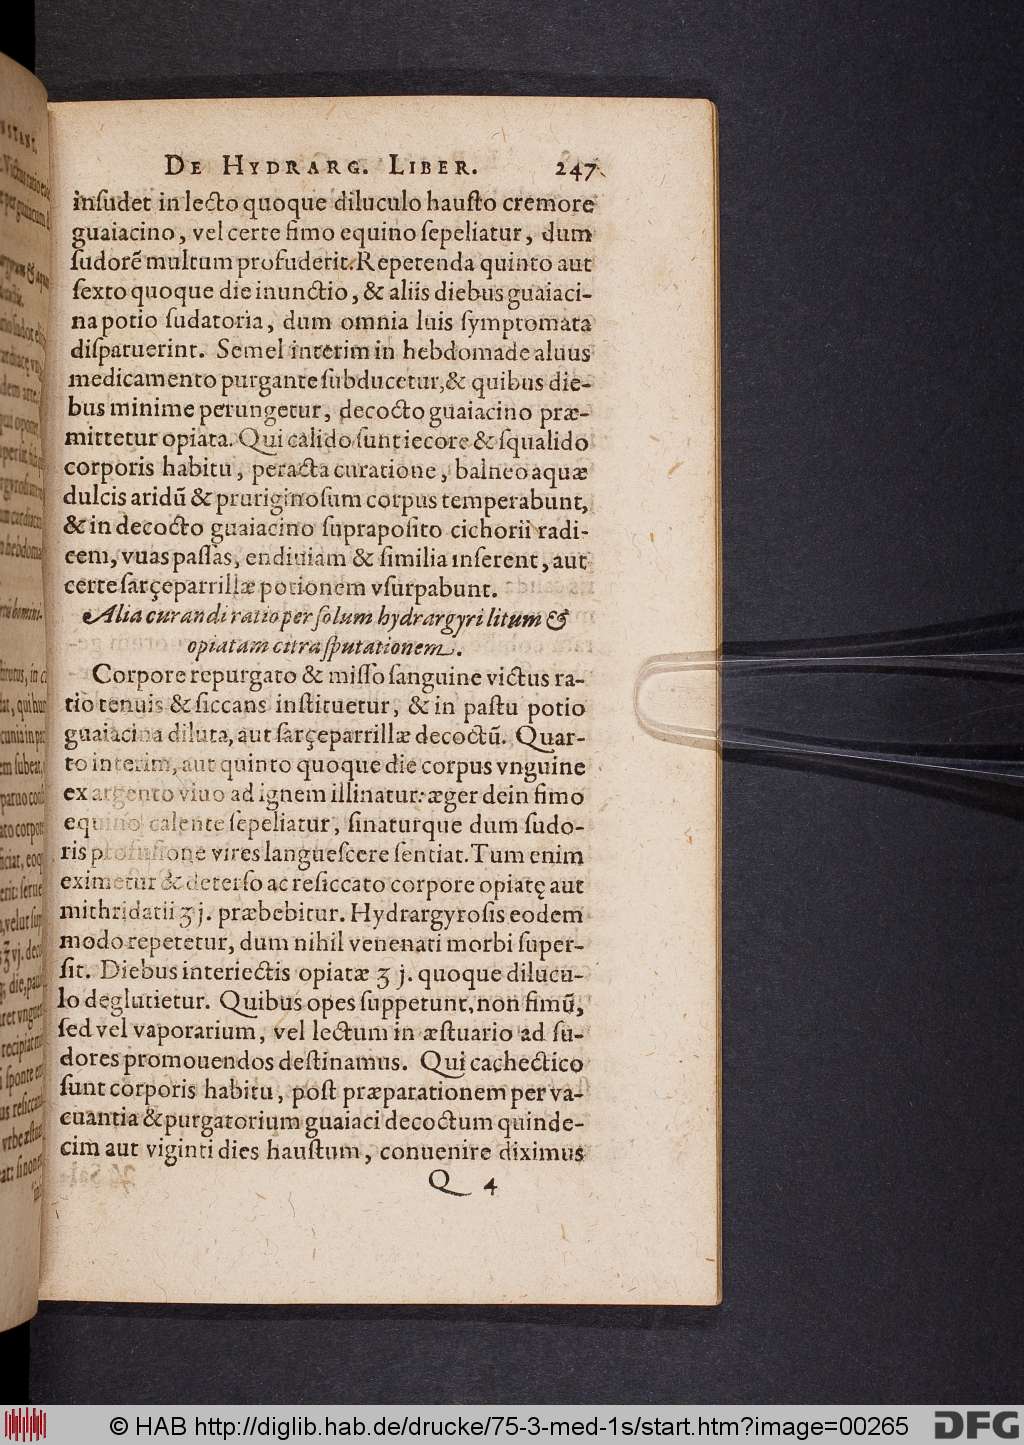 DE HYDRARG. LIBER. 247
inſudet in lecto quoque diluculo hauſto cremore
guaiacino, vel certe fimo equino ſepeliatur, dum
ſudorẽ multum profuderit. Repetenda quinto aut
ſexto quoque die inunctio, & aliis diebus guaiaci-
na potio ſudatoria, dum omnia luis ſymptomata
diſparuerint. Semel interim in hebdomade aluus
medicamento purgante ſubducetur, & quibus die-
bus minime perungetur, decocto guaiacino præ-
mittetur opiata. Qui calido ſunt iecore & ſqualido
corporis habitu, peracta curatione, balneo aquæ
dulcis aridũ & pruriginoſum corpus temperabunt,
& in decocto guaiacino ſuprapoſito cichorii radi-
cem, vuas paſſas, endiuiam & ſimilia inſerent, aut
certe ſarçeparrillæ potionem vſurpabunt.
Alia curandi ratio per ſolum hydrargyri litum &
opiatam citra ſputationem.
Corpore repurgato & miſſo ſanguine victus ra-
tio tenuis & ſiccans inſtituetur, & in paſtu potio
guaiacina diluta, aut ſarçeparrillæ decoctũ. Quar-
to interim, aut quinto quoque die corpus vnguine
ex argento viuo ad ignem illinatur: æger dein fimo
equino calente ſepeliatur, ſinaturque dum ſudo-
ris profuſione vires langueſcere ſentiat. Tum enim
eximetur & deterſo ac reſiccato corpore opiatę aut
mithridatii ʒ j. præbebitur. Hydrargyroſis eodem
modo repetetur, dum nihil venenati morbi ſuper-
ſit. Diebus interiectis opiatæ ʒ j. quoque dilucu-
lo deglutietur. Quibus opes ſuppetunt, non fimũ,
ſed vel vaporarium, vel lectum in æſtuario ad ſu-
dores promouendos deſtinamus. Qui cachectico
ſunt corporis habitu, poſt præparationem per va-
cuantia & purgatorium guaiaci decoctum quinde-
cim aut viginti dies hauſtum, conuenire diximus
Q 4
© HAB http://diglib.hab.de/drucke/75-3-med-1s/start.htm?image=00265
DFG